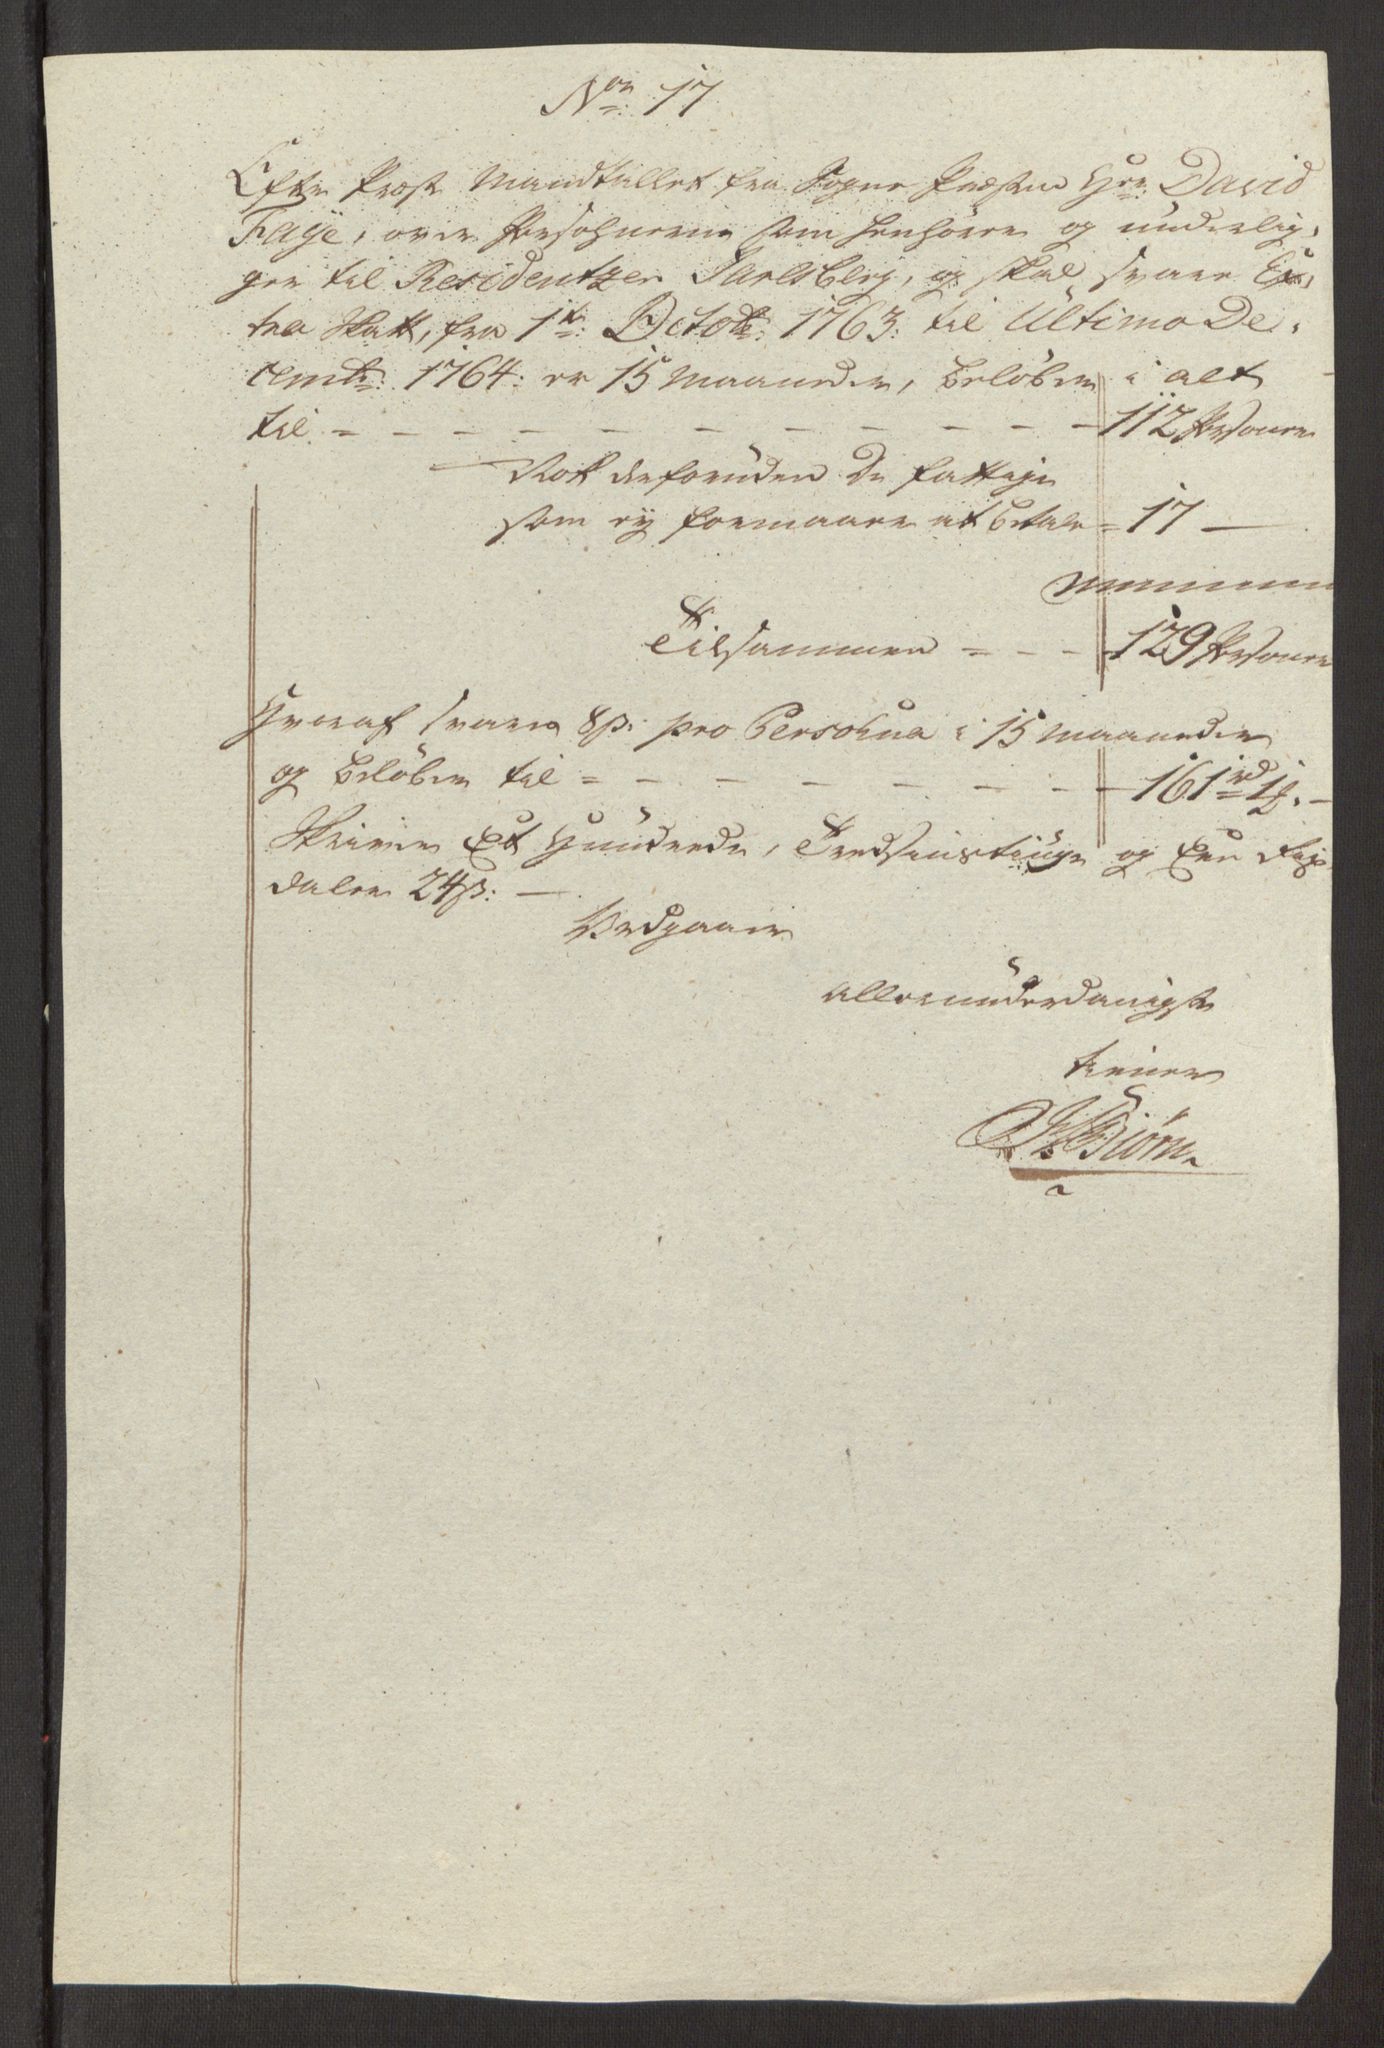 No: 17
Efter Præste Mandtallet fra Sogne Præsten Hr: David
Faÿe, over Persohnerne som henhörer og underlig-
ger til Residentzen Jarlsberg, og skal svare Ex-
tra Skatt, fra 1te: Octobr: 1763: til Ultimo De-
cembr: 1764: er 15 Maaneder, belöber i alt
til = - - - - - - - - - - 112 Persouner
Nok deforuden De fattige
som eÿ formaaer at betale = 17 -
Tilsammen = - - - 129 Persouner
Hvoraf svares 8 s: pro Persohna i 15 Maaneder
og belöber til = - - - - - - - 161 rd 1
Skriver Et Hundrede, Tredsindstiuge og Een Rix
daler 24 s: -
Vedgaaer
allerunderdanigst
tiener
Biörn